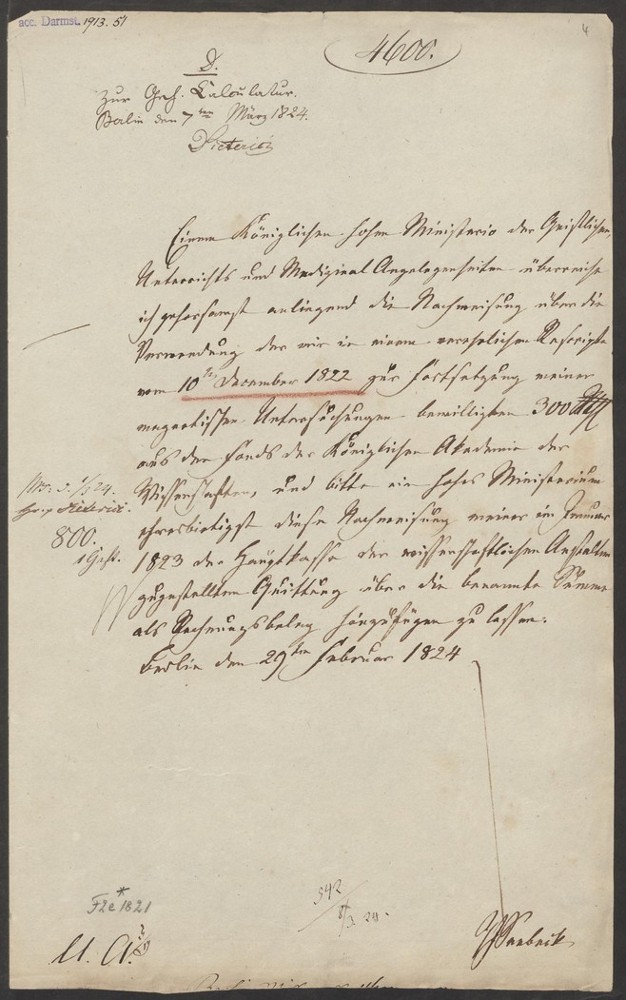 acc. Darmst. 1913. 51
4
4600.
D.
Zur Geh. Calculatur.
Berlin den 7ten März 1824.
Dieterici
Einem Königlichen hohen Ministerio der Geistlichen,
Unterrichts und Medizinal Angelegenheiten überreiche
ich gehorsamst anliegend die Nachweisung über die
Verwendung der mir in einem verehrlichen Rescripte
vom 10ten December 1822 zur Fortsetzung meiner
magnetischen Untersuchungen bewilligten 300
aus den Fonds der Königlichen Akademie der
Wissenschaften, und bitte ein hohes Ministerium
ehrerbietigst diese Nachweisung meiner im Januar
1823 der Hauptkasse der wissenschaftlichen Anstalten
zugestellten Quittung über die benannte Summe
als Rechnungsbeleg hinzufügen zu lassen.
Berlin den 29ten Februar 1824
3/3 24.
Dieterici.
800.
1 Heft.
F2e* 1821
542
24.
U. A.
Seebeck